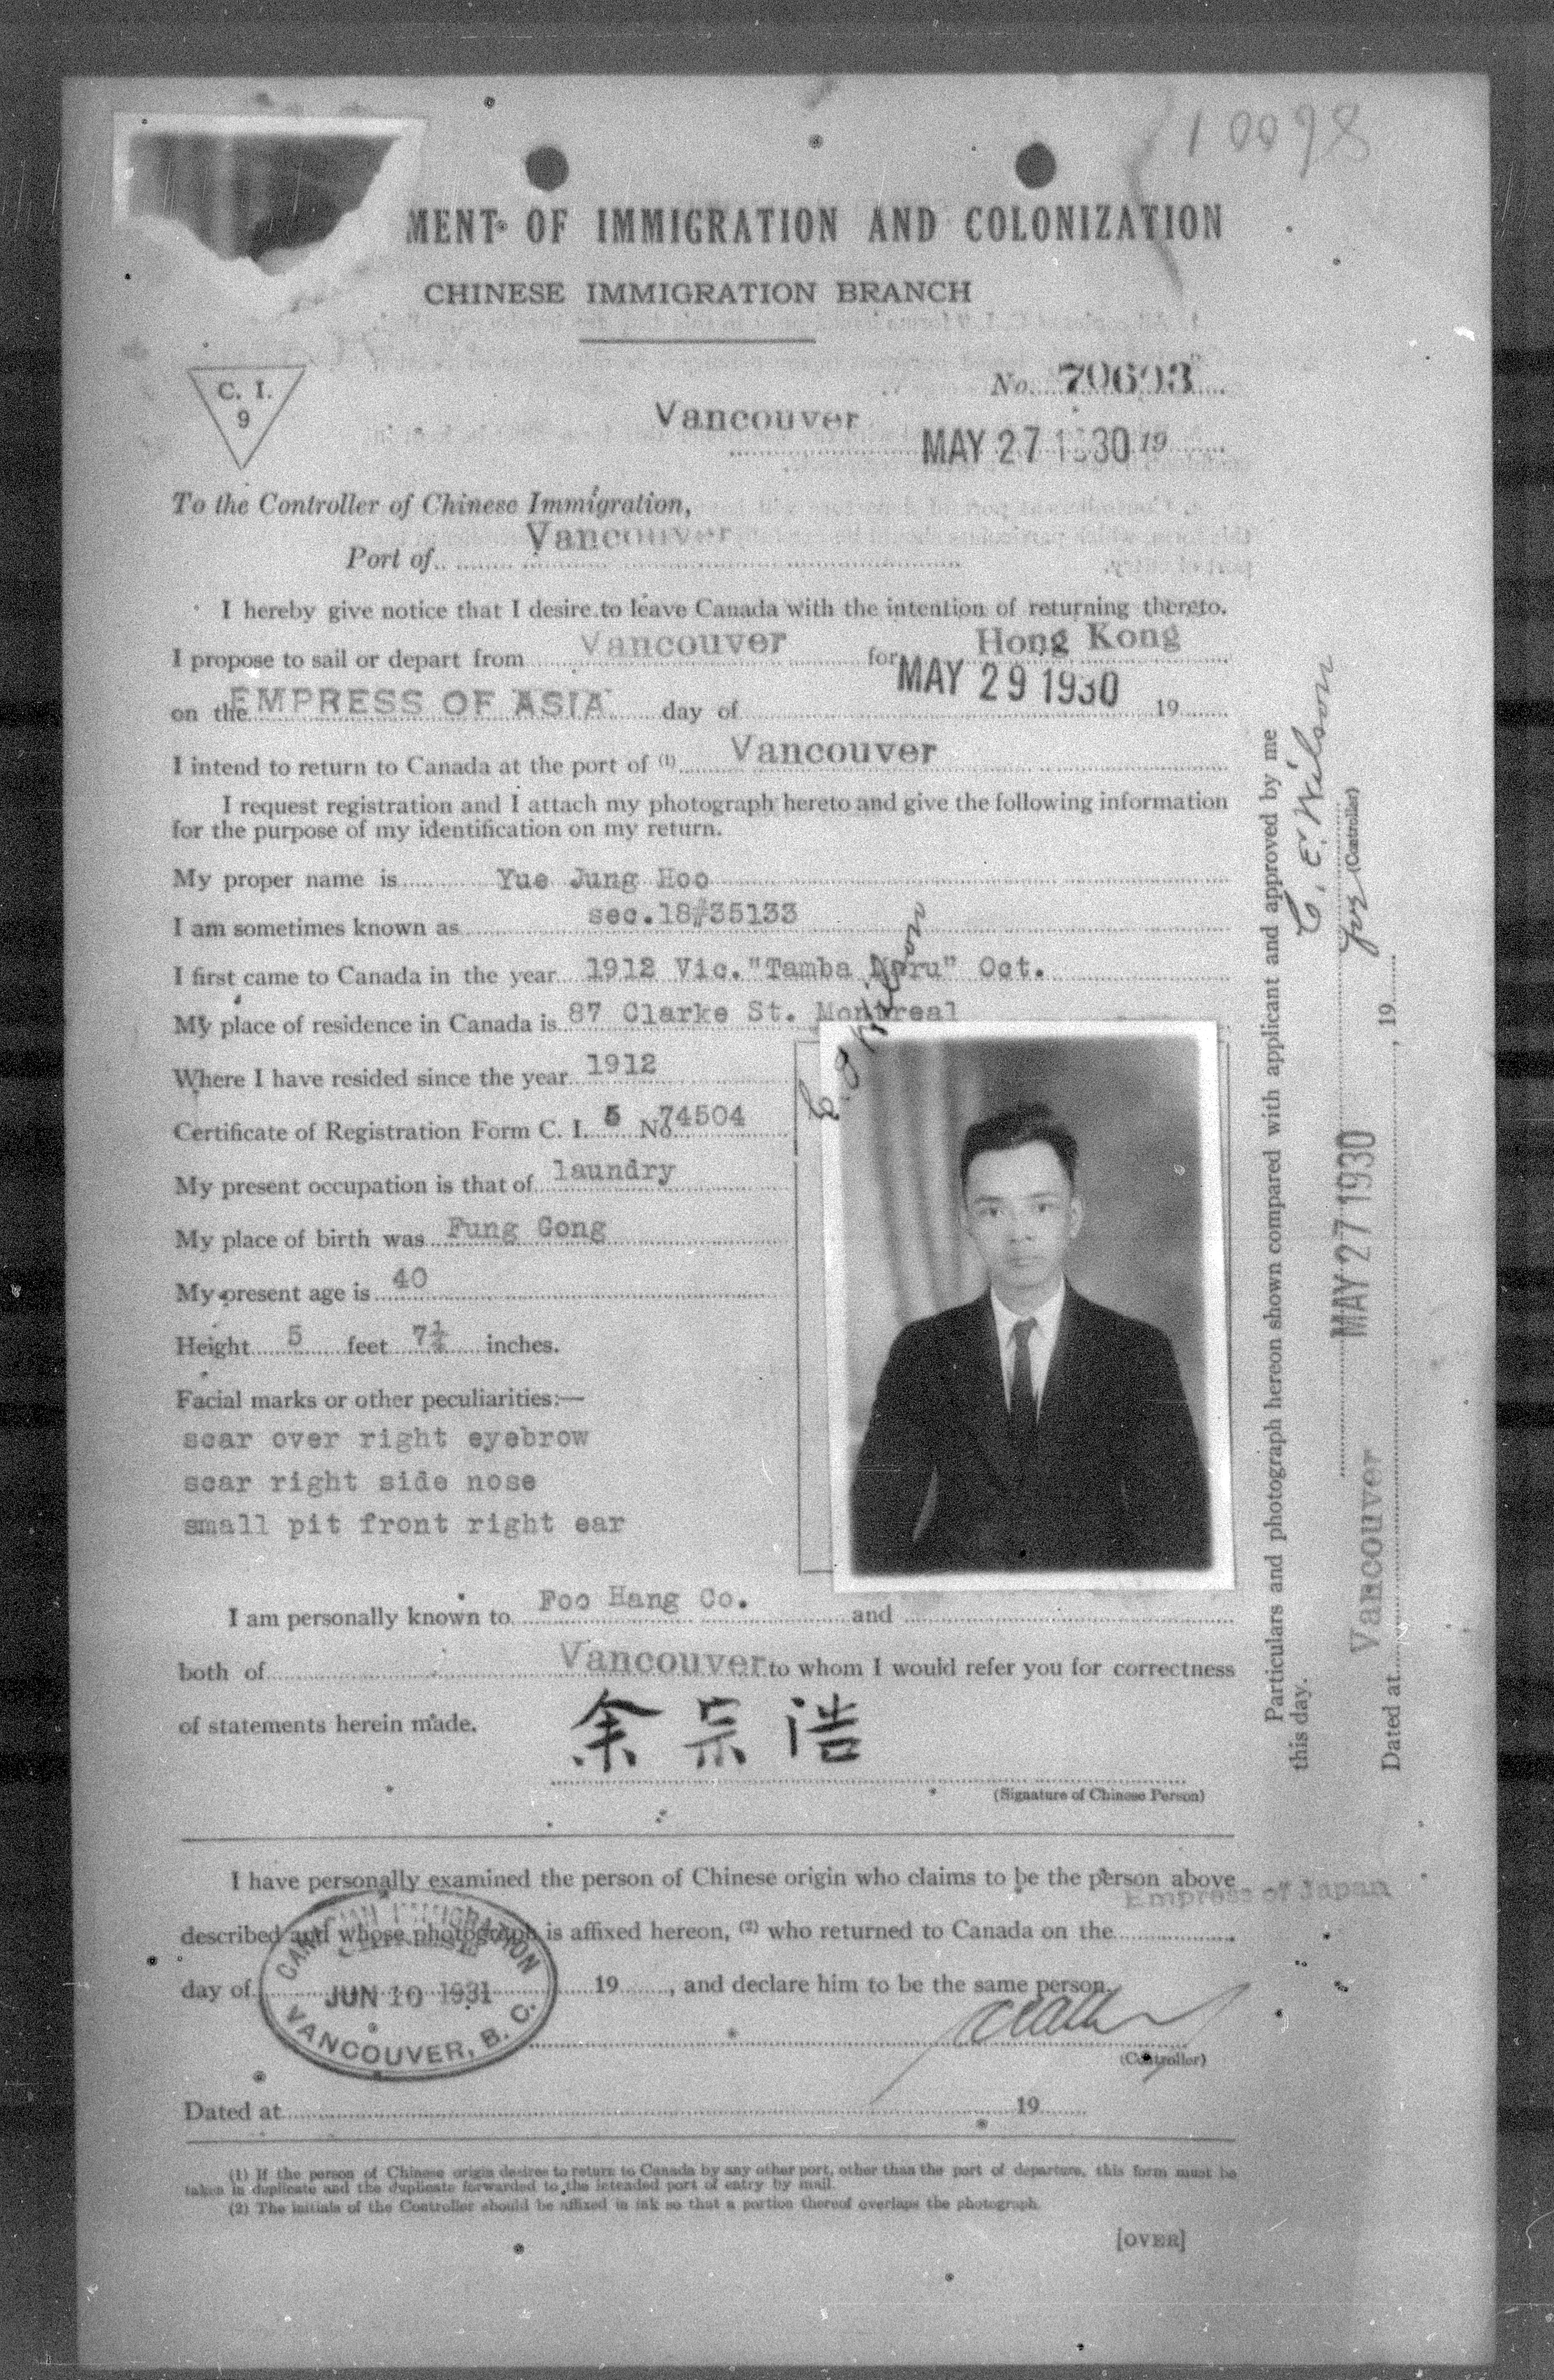 10098
MENT OF IMMIGRATION AND COLONIZATION
CHINESE IMMIGRATION BRANCH
C. I.
9
No. 70693
Vancouver
MAY 27 1930 19
To the Controller of Chinese Immigration,
Port of Vancouver
I hereby give notice that I desire to leave Canada with the intention of returning thereto.
I propose to sail or depart from Vancouver for Hong Kong
on the EMPRESS OF ASIA day of MAY 29 1930 19
I intend to return to Canada at the port of (1) Vancouver
I request registration and I attach my photograph hereto and give the following information
for the purpose of my identification on my return.
My proper name is Yue Jung Hoo
I am sometimes known as sec.18#35133
I first came to Canada in the year 1912 Vic. "Tamba Maru" Oct.
My place of residence in Canada is 87 Clarke St. Montreal
Where I have resided since the year 1912
Certificate of Registration Form C. I. 5 No. 74504
My present occupation is that of laundry
My place of birth was Fung Gong
My present age is 40
Height 5 feet 7½ inches.
Facial marks or other peculiarities:—
scar over right eyebrow
scar right side nose
small pit front right ear
I am personally known to Foo Hang Co. and
both of Vancouver to whom I would refer you for correctness
of statements herein made.
余宗浩
(Signature of Chinese Person)
I have personally examined the person of Chinese origin who claims to be the person above
Empress of Japan
described and whose photograph is affixed hereon, (2) who returned to Canada on the
day of 19 , and declare him to be the same person.
CANADIAN IMMIGRATION
JUN 10 1931
VANCOUVER, B. C.
(Controller)
Dated at 19
(1) If the person of Chinese origin desires to return to Canada by any other port, other than the port of departure, this form must be
taken in duplicate and the duplicate forwarded to the intended port of entry by mail.
(2) The initials of the Controller should be affixed in ink so that a portion thereof overlaps the photograph.
[OVER]
Particulars and photograph hereon shown compared with applicant and approved by me
this day.
C. E. Wilson
for (Controller)
MAY 27 1930
Dated at Vancouver , 19